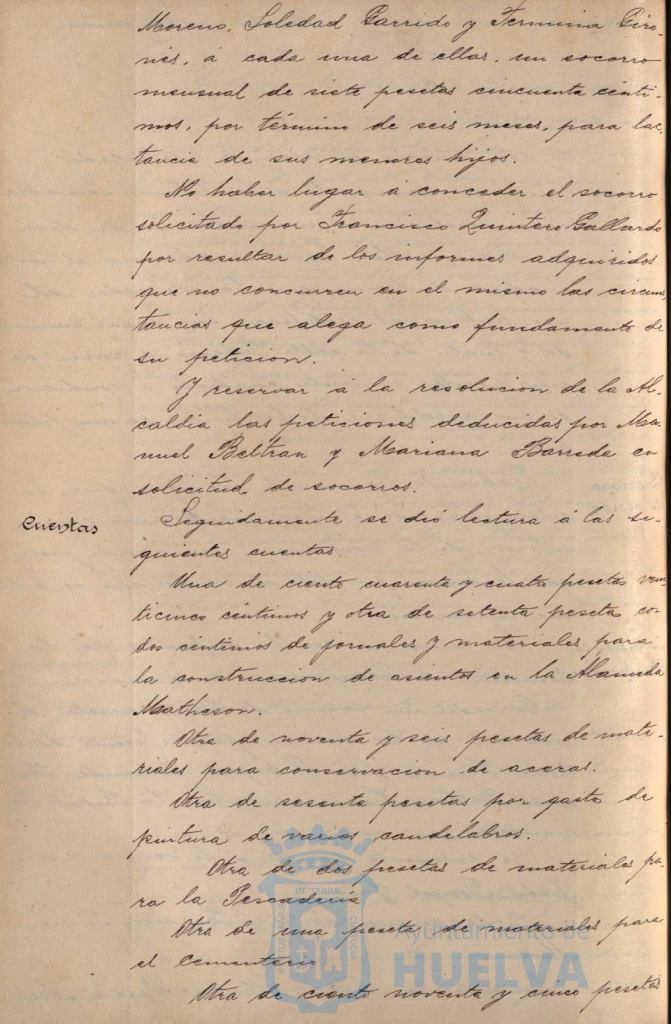 Moreno, Soledad Garrido y Termina Giro-
nés, á cada una de ellas, un socorro
mensual de siete pesetas cincuenta cénti-
mos, por término de seis meses, para lac-
tancia de sus menores hijos.
No haber lugar á conceder el socorro
solicitado por Francisco Quintero Gallardo
por resultar de los informes adquiridos
que no concurren en el mismo las circuns-
tancias que alega como fundamento de
su peticion.
Y reservar á la resolucion de la Al-
caldia las peticiones deducidas por Ma-
nuel Beltran y Mariana Barreda en
solicitud de socorros.
Cuentas
Seguidamente se dió lectura á las si-
guientes cuentas.
Una de ciento cuarenta y cuatro pesetas vein-
ticinco céntimos y otra de setenta pesetas co
dos céntimos de jornales y materiales para
la construccion de asientos en la Alameda
Matheson.
Otra de noventa y seis pesetas de mate-
riales para conservacion de aceras.
Otra de sesenta pesetas por gasto de
pintura de varios candelabros.
Otra de dos pesetas de materiales pa-
ra la Pescaderia
Otra de una peseta de materiales para
el Cementerio
Otra de ciento noventa y cinco pesetas
Ayuntamiento de
HUELVA